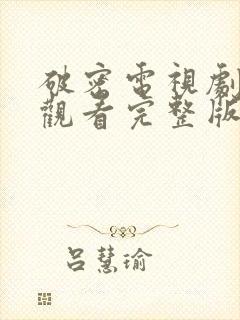 破密電視劇
觀看完整版
呂慧瑜